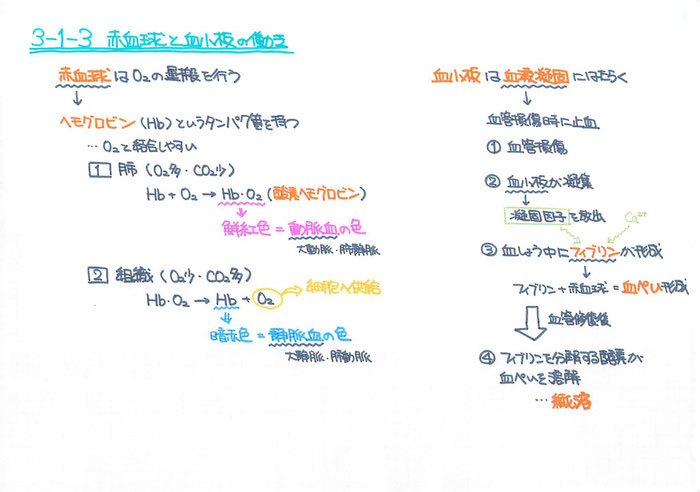 3-1-3 赤血球と血小板の働き
赤血球はO₂の運搬を行う
↓
ヘモグロビン(Hb)というタンパク質を持つ
…O₂と結合しやすい
1 肺(O₂多・CO₂少)
Hb+O₂→Hb・O₂(酸素ヘモグロビン)
鮮紅色=動脈血の色
大動脈・肺静脈
2 組織(O₂少・CO₂多)
Hb・O₂→Hb+O₂ 細胞へ供給
暗赤色=静脈血の色
大静脈・肺動脈
血小板は血液凝固にはたらく
↓
血管損傷時に止血
① 血管損傷
② 血小板が凝集
凝固因子を放出 Ca²⁺
③ 血しょう中にフィブリンが形成
フィブリン+赤血球=血ぺい形成
血管修復後
④ フィブリンを分解する酵素が
血ぺいを溶解
…線溶